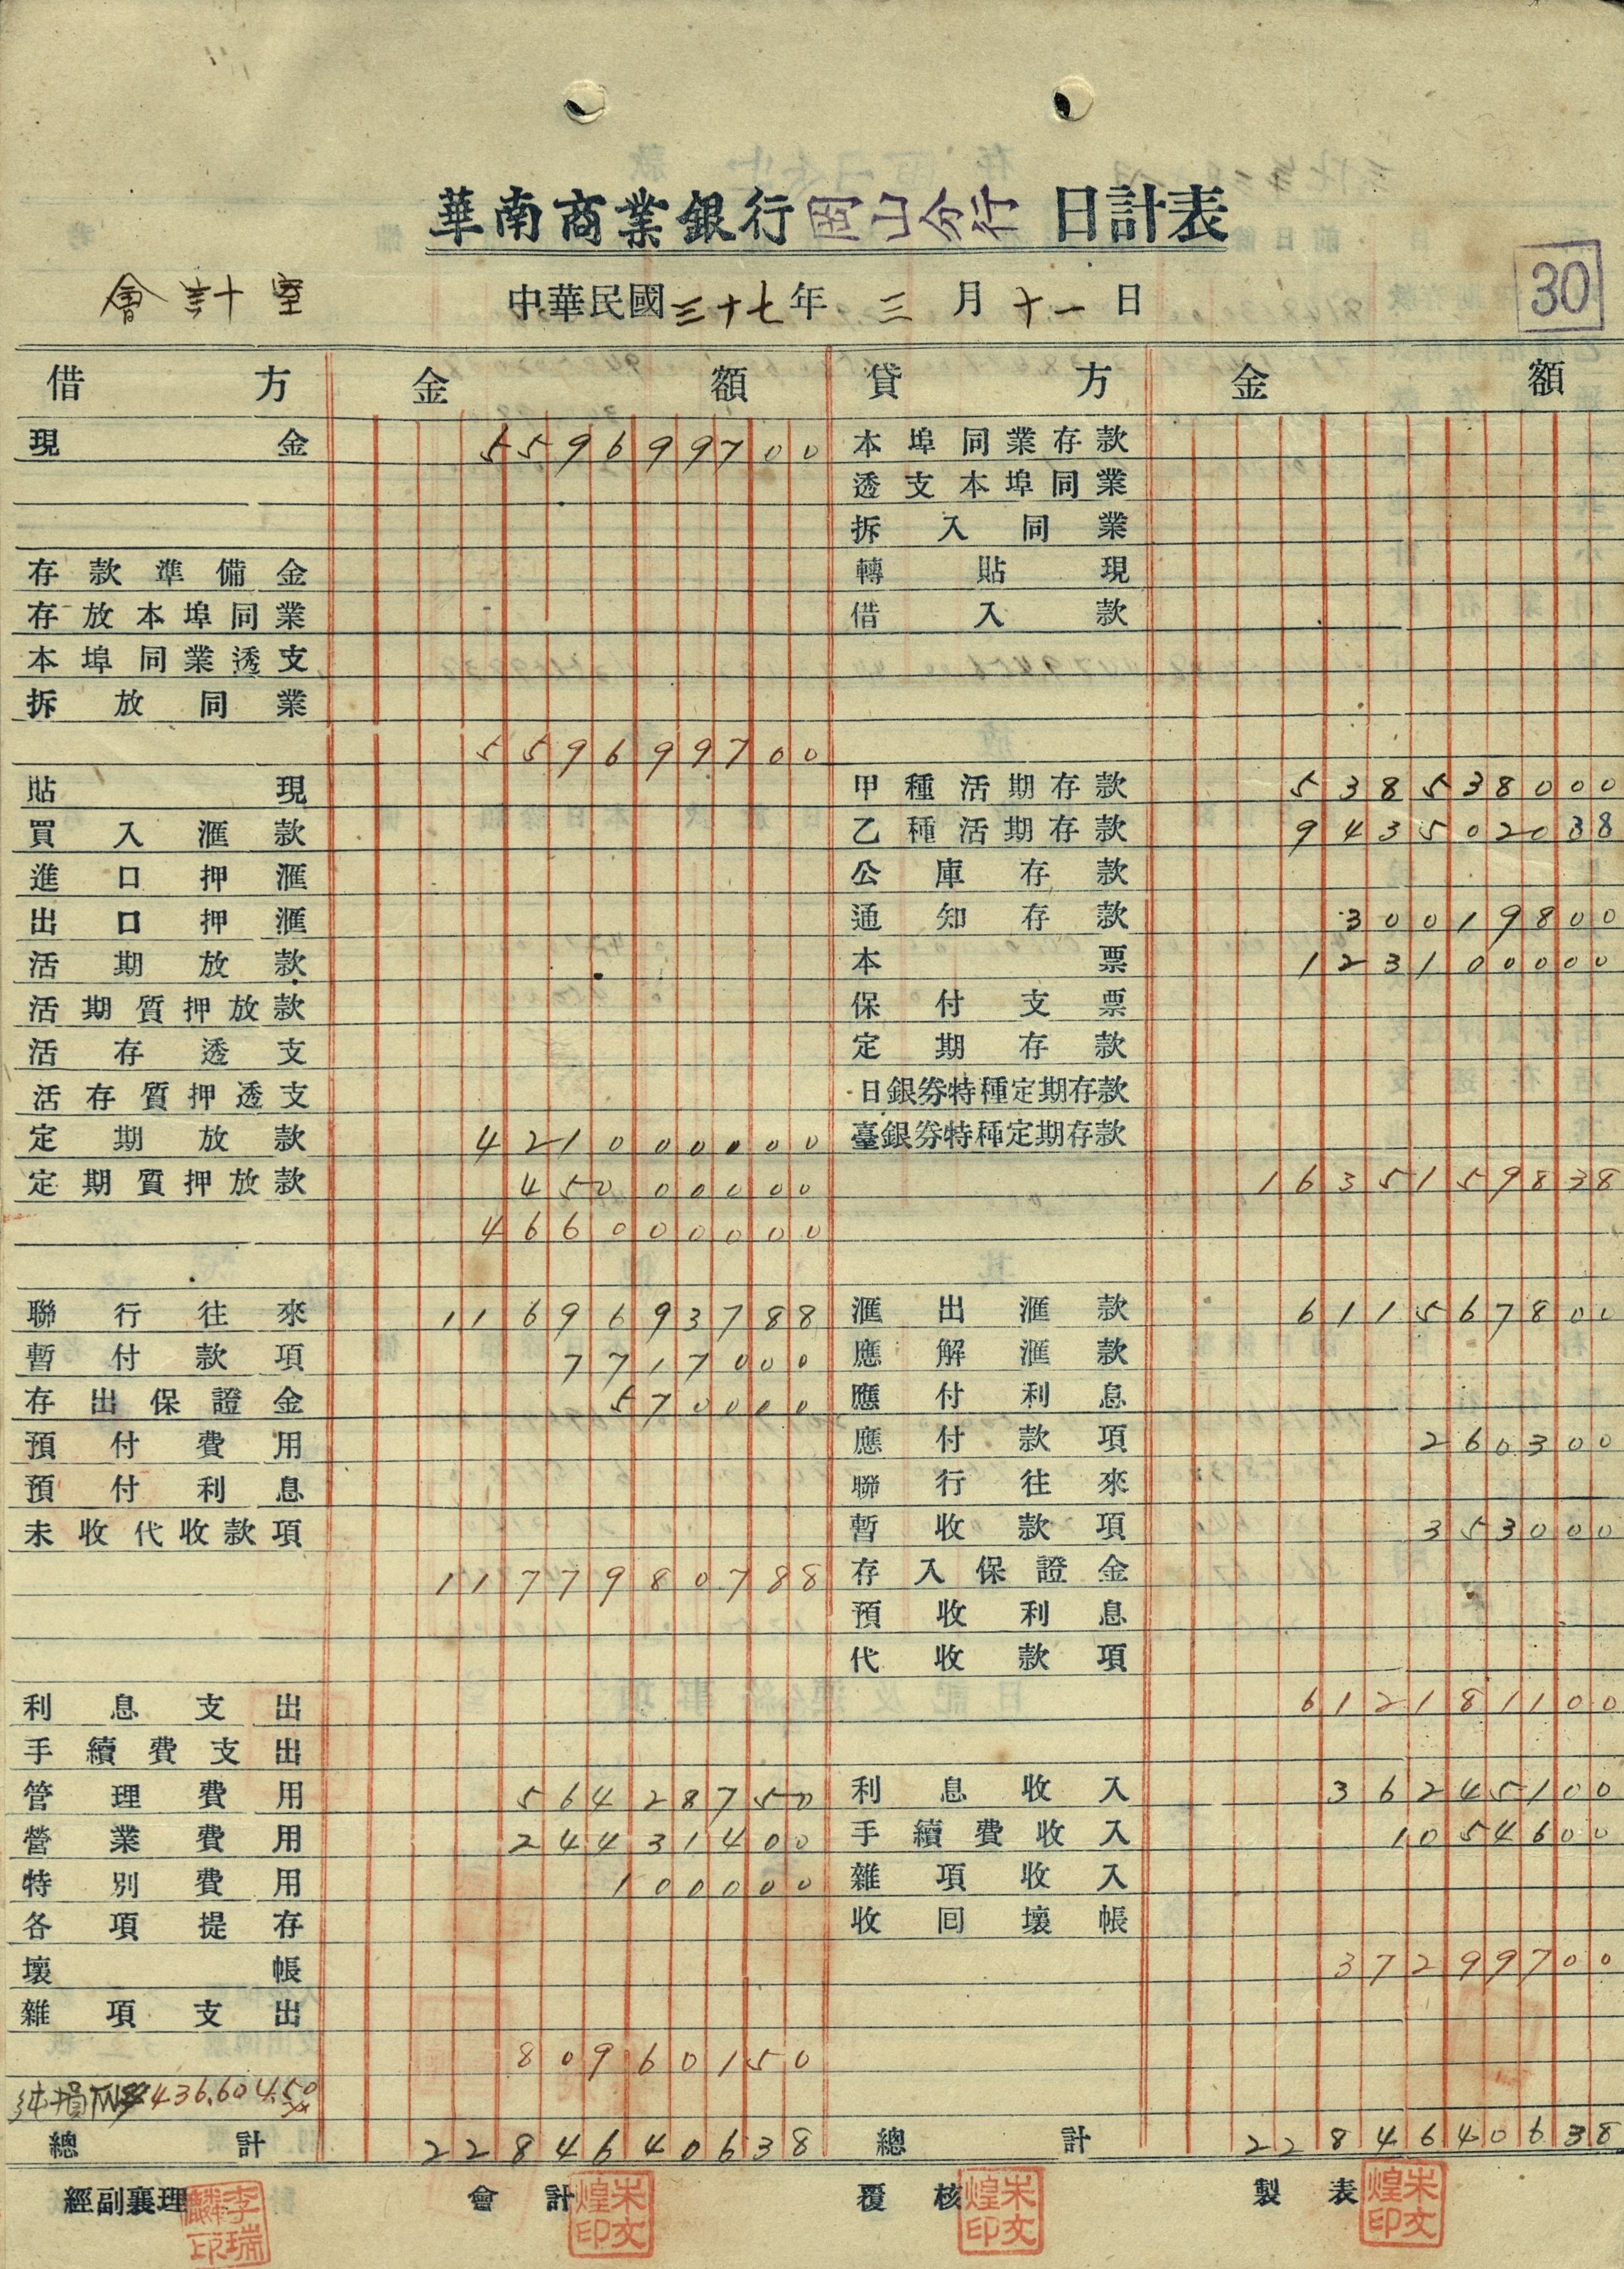 華南商業銀行 西口分行 日計表
會計室
中華民國三十七年三月十一日
30
借方 金額 貸方 金額
現金 559699700 本埠同業存款
透支本埠同業
拆入同業
存款準備金 轉貼現
存放本埠同業 借入款
本埠同業透支
拆放同業
559699700
貼現 甲種活期存款 538538000
買入滙款 乙種活期存款 943502038
進口押滙 公庫存款
出口押滙 通知存款 30019800
活期放款 本票 123100000
活期質押放款 保付支票
活存透支 定期存款
活存質押透支 日銀券特種定期存款
定期放款 421000000 臺銀券特種定期存款
定期質押放款 45000000 1635159838
466000000
聯行往來 1169693788 滙出滙款 611567800
暫付款項 7717000 應解滙款
存出保證金 570000 應付利息
預付費用 應付款項 260300
預付利息 聯行往來
未收代收款項 暫收款項 353000
1177980788 存入保證金
預收利息
代收款項
利息支出 612181100
手續費支出
管理費用 56428750 利息收入 36245100
營業費用 24431400 手續費收入 1054600
特別費用 100000 雜項收入
各項提存 收回壞帳
壞帳 37299700
雜項支出
80960150
純損 436,604.50
總計 2284640638 總計 2284640638
經副襄理 會計 覆核 製表
李瑞麟印 朱文煌印 朱文煌印 朱文煌印